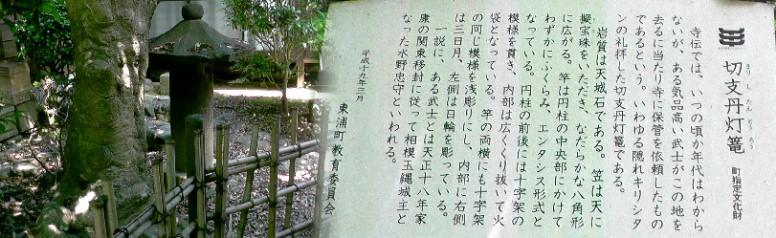 切支丹灯篭 町指定文化財
きりしたんどうろう
寺伝では、いつの頃か年代はわから
ないが、ある気品高い武士がこの地を
去るに当たり寺に保管を依頼したもの
であるという。いわゆる隠れキリシタ
ンの礼拝した切支丹灯篭である。
岩質は天城石である。笠は天に
擬宝珠をいただき、なだらかな八角形
に広がる。竿は円柱の中央部にかけて
わずかにふくらみ、エンタシス形式と
なっている。円柱の前後には十字架の
模様を貫き、内部は広くくり抜いて火
袋となっている。竿の両横にも十字架
の同じ模様を浅彫りにし、内部に右側
は三日月、左側は日輪を彫っている。
一説に、ある武士とは天正十八年家
康の関東移封に従って相模玉縄城主と
なった水野忠守といわれる。
平成十九年三月
東浦町教育委員会